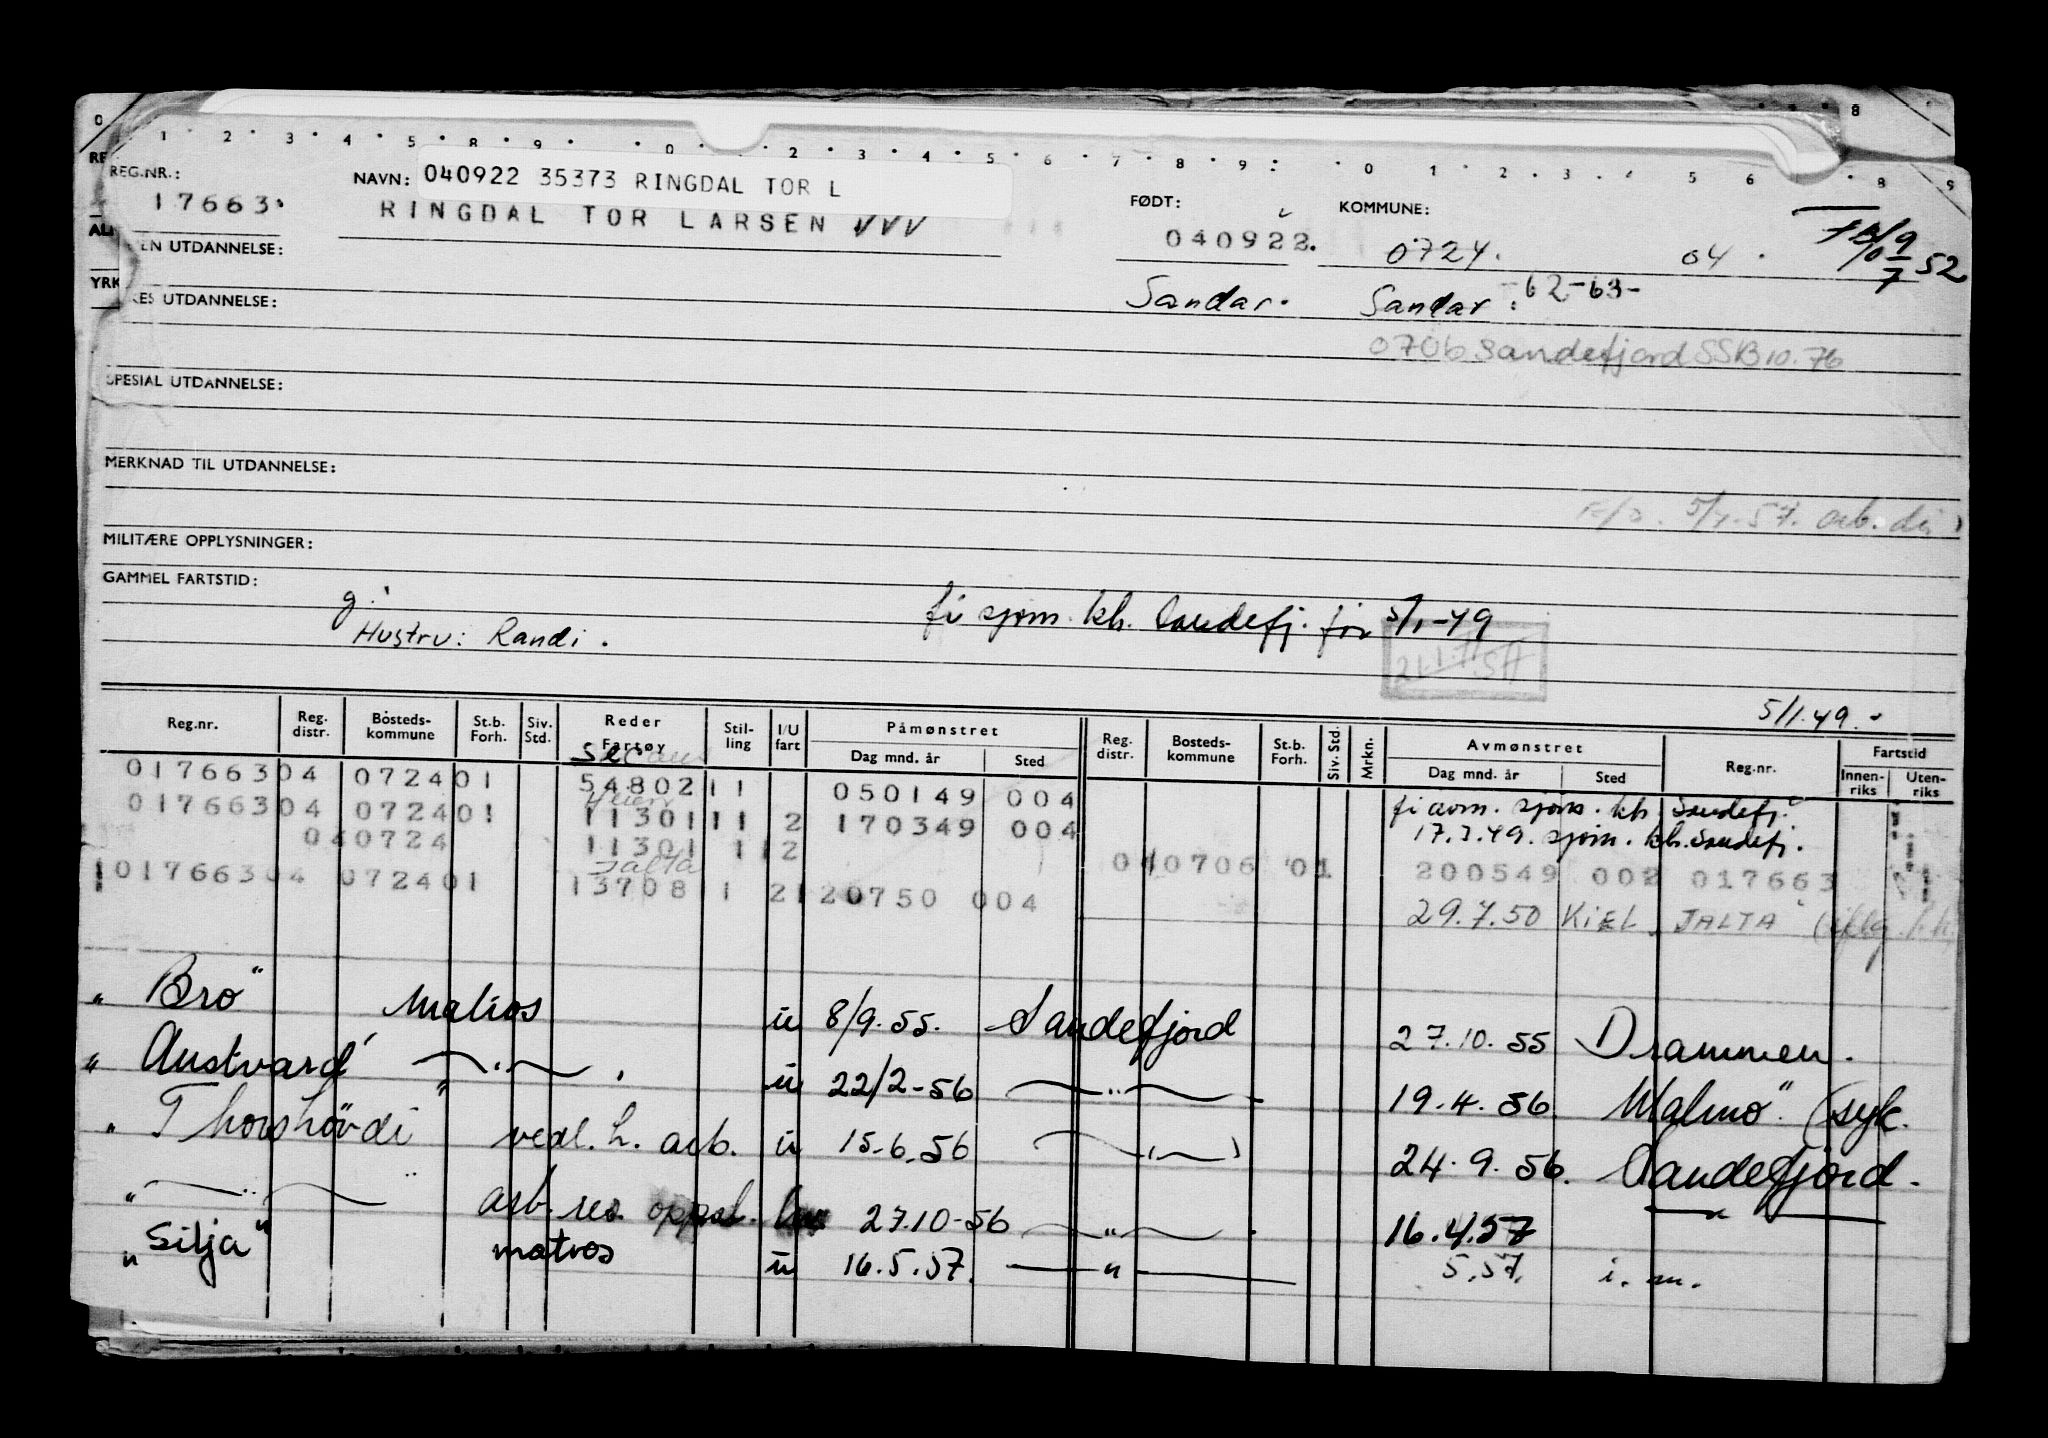 REG.NR.:
17663
NAVN: 040922 35373 RINGDAL TOR L
RINGDAL TOR LARSEN VVV
FØDT:
040922.
Sandar.
KOMMUNE:
0724. 04.
Sandar: -62-63-
0706 Sandefjord SSB 10.76
EN UTDANNELSE:
YRK
KES UTDANNELSE:
SPESIAL UTDANNELSE:
MERKNAD TIL UTDANNELSE:
5/4-57. arb.
MILITÆRE OPPLYSNINGER:
GAMMEL FARTSTID:
g.
Hustru: Randi.
fi sjøm. kh. Sandefj. før 5/1-49
5/1.49.-
Reg.nr. Reg. distr. Bosteds-kommune St.b. Forh. Siv. Std. Reder Fartøy Stil-ling I/U fart Påmønstret Dag mnd. år Sted Reg. distr. Bosteds-kommune St.b. Forh. Siv. Std. Mrkn. Avmønstret Dag mnd. år Sted Reg.nr. Fartstid Innen-riks Uten-riks
01766304 072401 54802 11 050149 004 fi avm. sjøm. kh. Sandefj.
01766304 072401 11301 11 2 170349 004 17.3.49. sjøm. kh. Sandefj.
040724 11301 11 2 040706 01 200549 002 017663
Jalta
01766304 072401 13708 1 2 120750 004 29.7.50 KIEL, JALTA
"Bro" Matros u 8/9.55. Sandefjord 27.10.55 Drammen.
"Austvard" —"— u 22/2-56 —"— 19.4.56 Malmö. (syk.
"Thorshövdi" vedl. h. arb. u 15-6-56 —"— 24.9.56. Sandefjord.
"—"—" arb. res. oppsl. 27.10-56 —"— 16.4.57 —"—
"Silja" matros u 16.5.57. —"— 5.57. i. m.